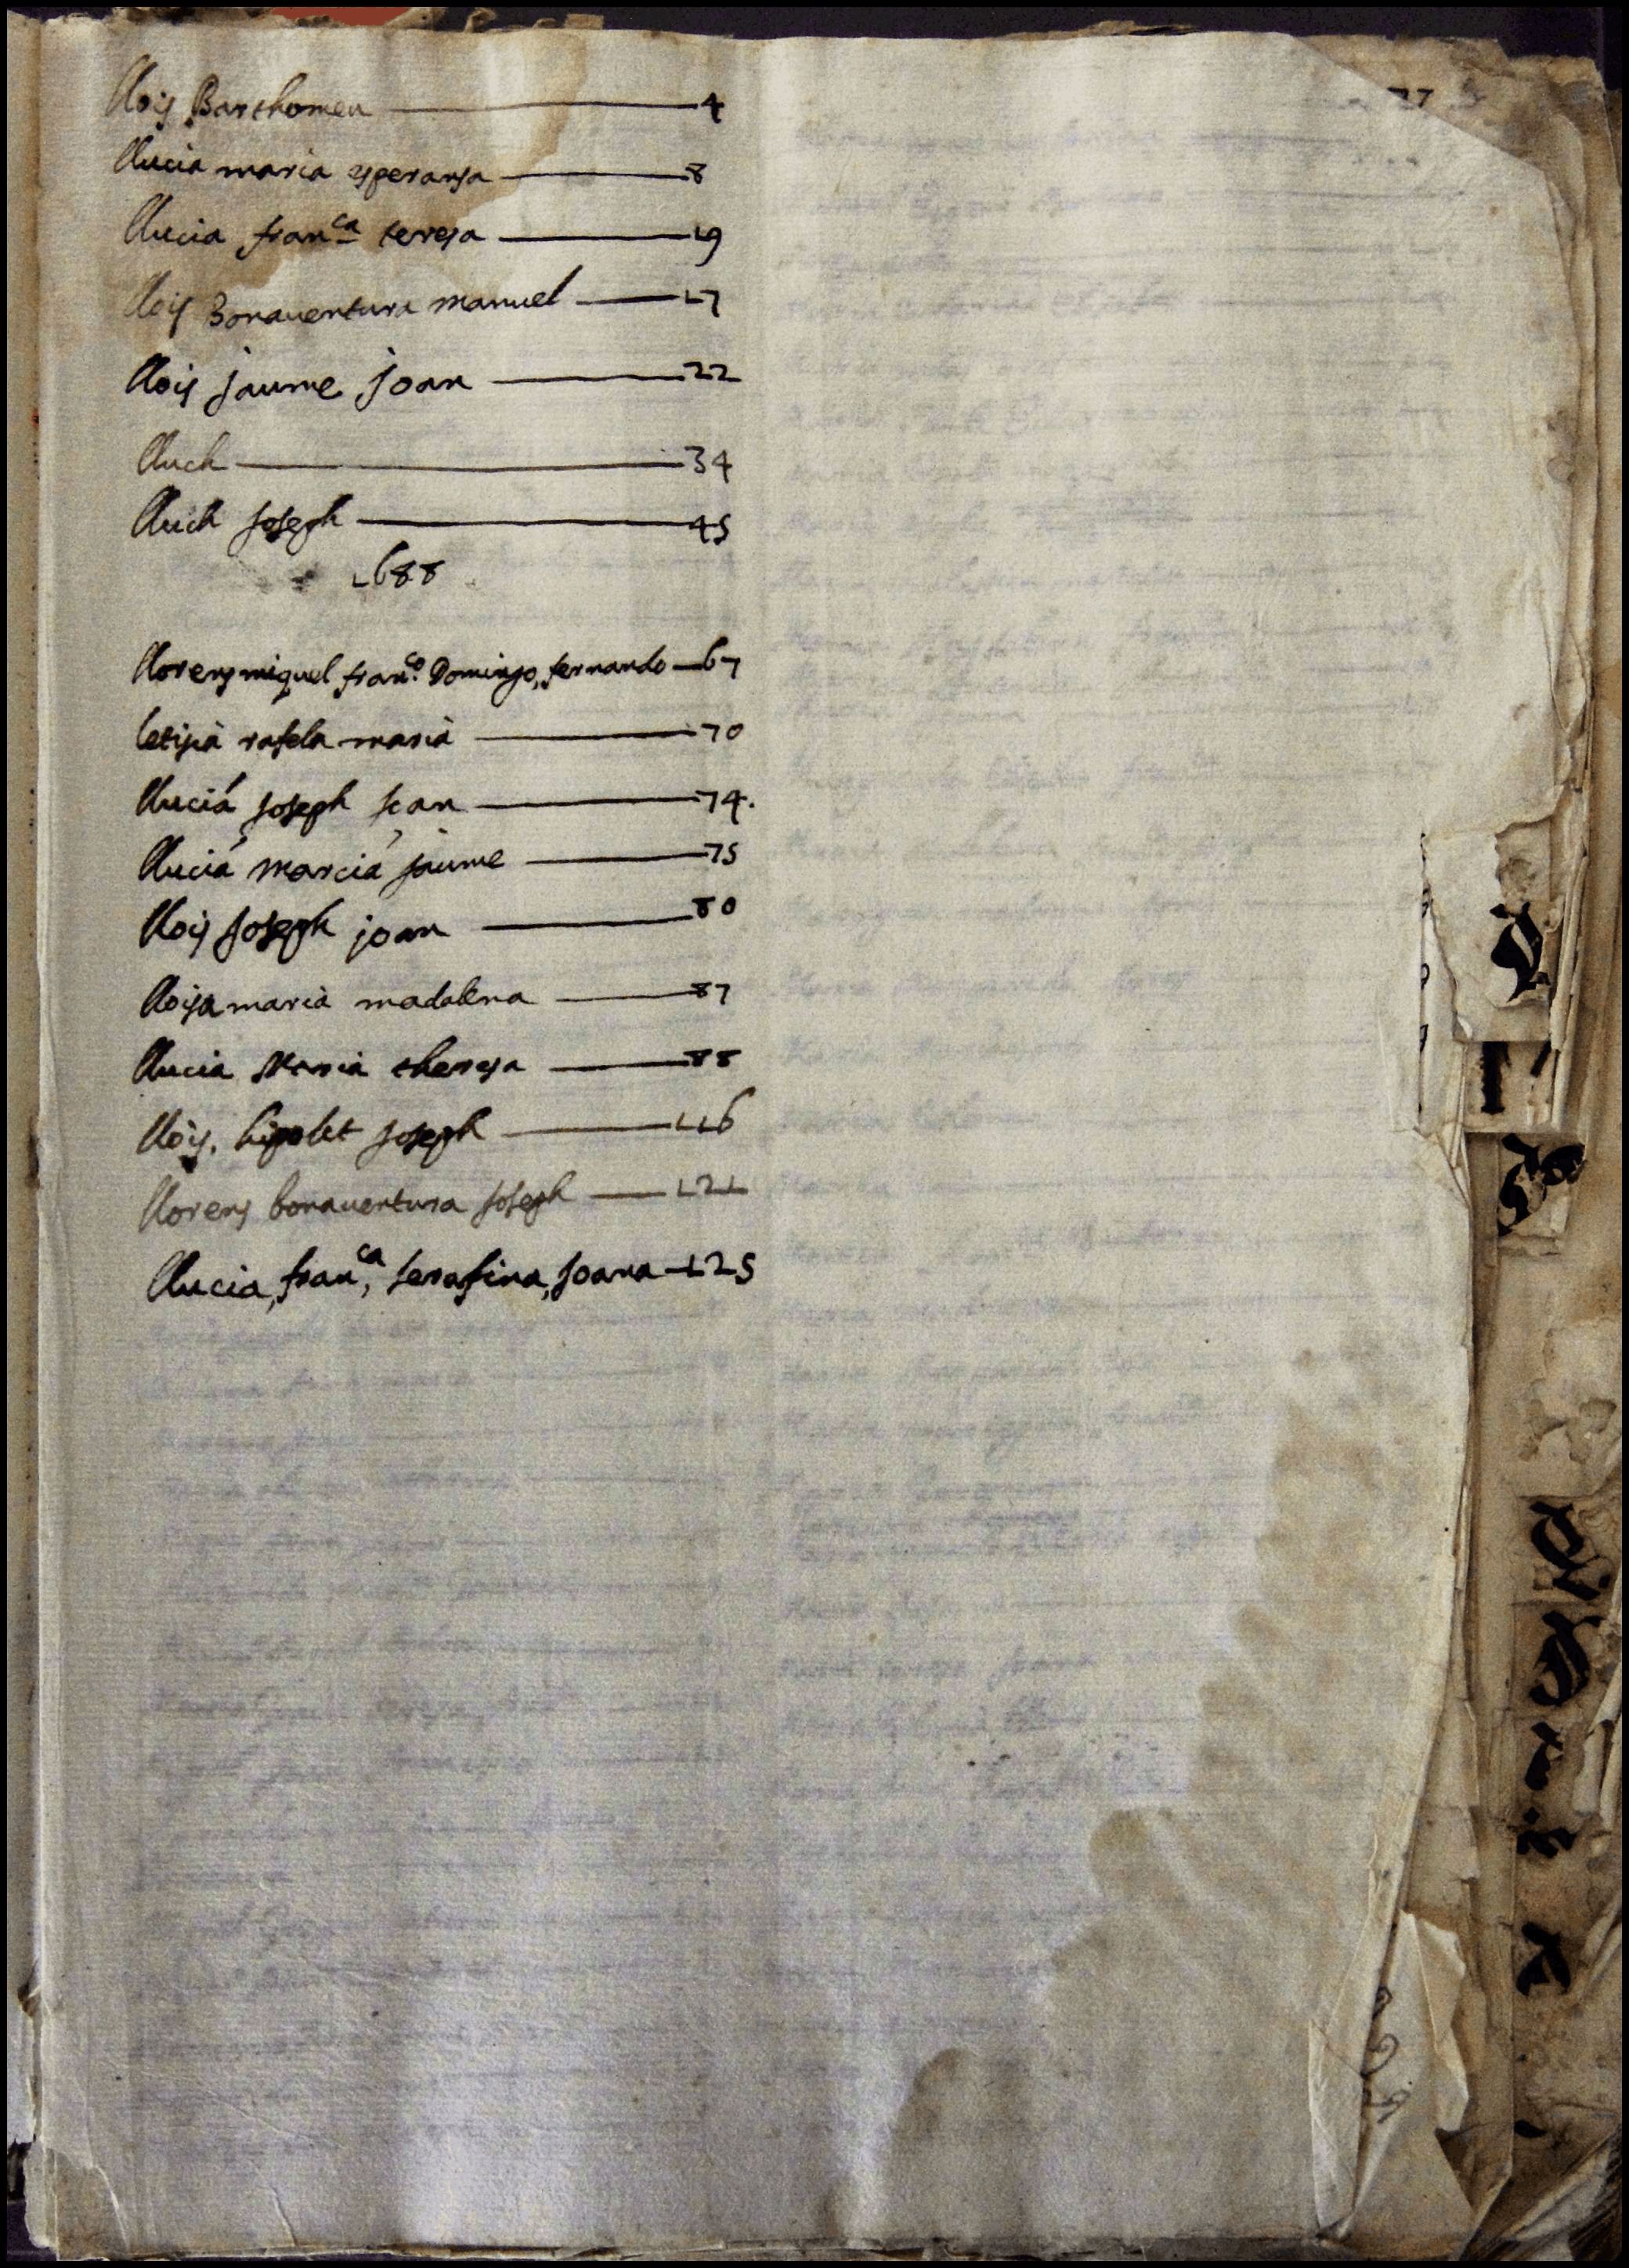 Llois Barthomeu 4
Llucia maria esperansa 8
Llucia fran^ca teresa 19
Llois Bonaventura Manuel 17
Llois jaume joan 22
Lluch 34
Lluch Joseph 45
1688
Llorens miquel fran^co Domingo, fernando 67
letisia rafela maria 70
Lluciá Joseph Joan 74.
Lluciá Marciá jaume 75
Llois Joseph joan 80
lloisa maria madalena 87
Llucia Maria theresa 88
Llois, hipolet Joseph 116
Llorens bonaventura Joseph 121
Llucia, fran^ca, serafina, Joana 125